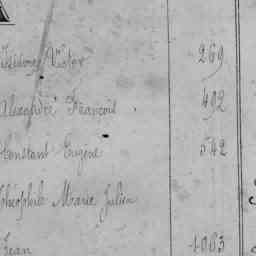 Victor 269
Alexandre François 492
Constant Eugène 542
Théophile Marie Julien
Jean 1063